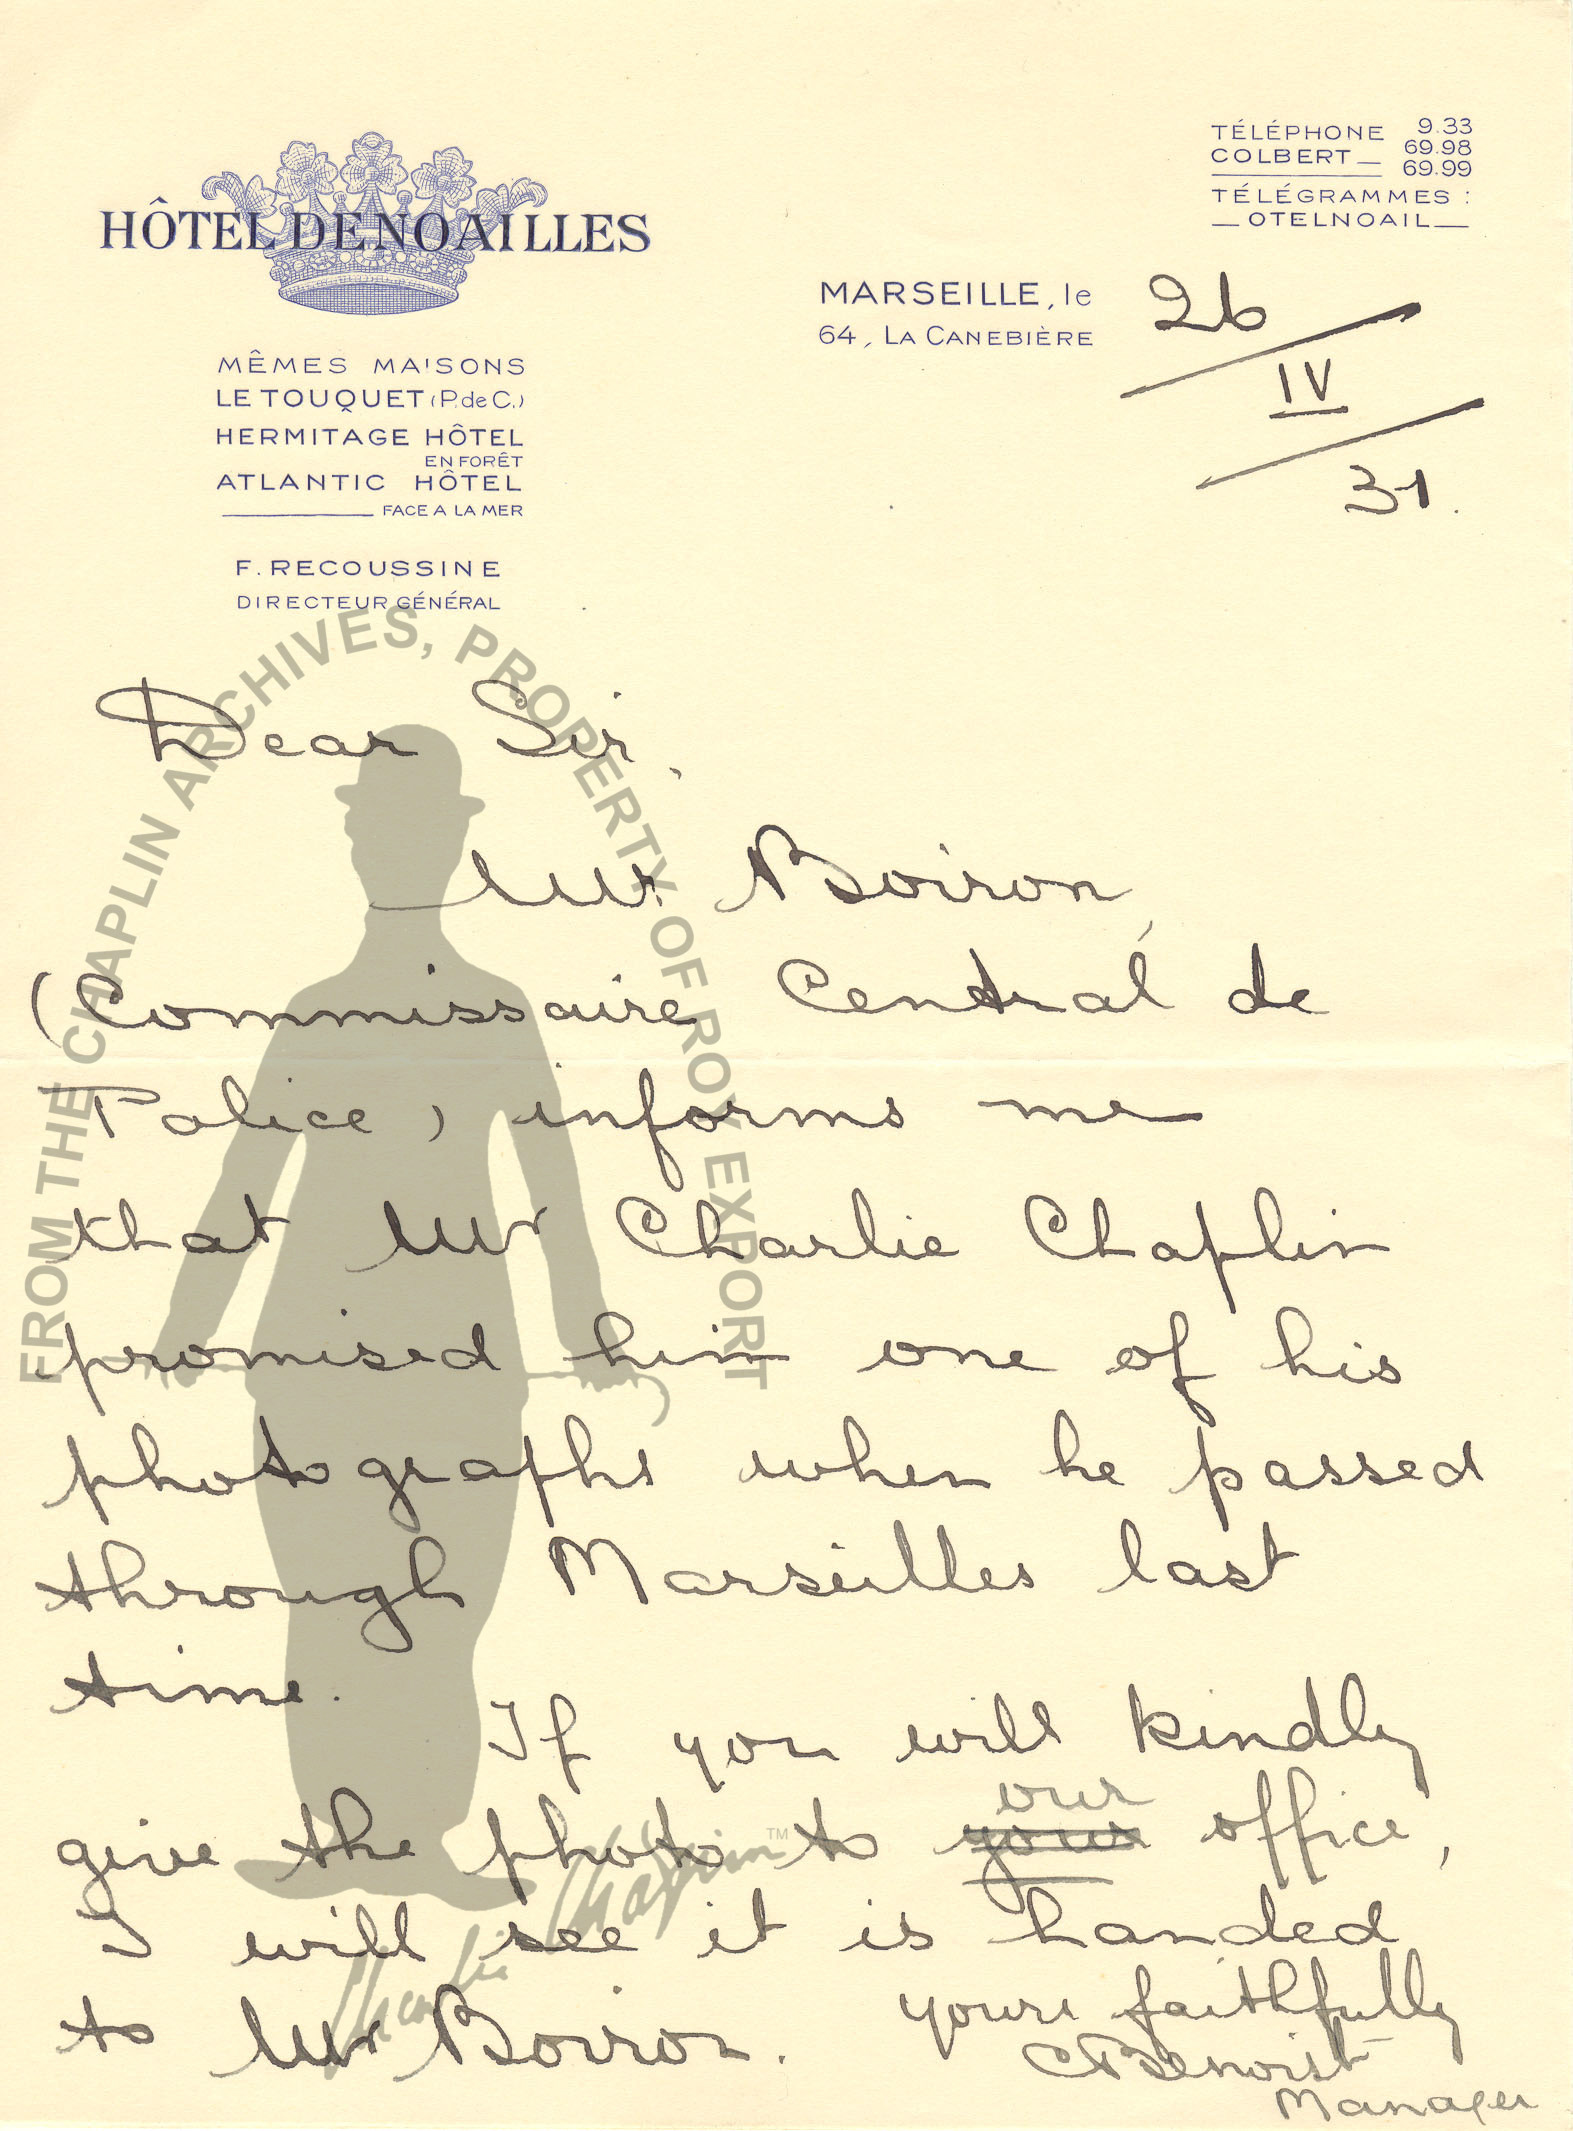 HÔTEL DE NOAILLES
MÊMES MAISONS
LE TOUQUET (P. de C.)
HERMITAGE HÔTEL
EN FORÊT
ATLANTIC HÔTEL
FACE A LA MER
F. RECOUSSINE
DIRECTEUR GÉNÉRAL
TÉLÉPHONE 9.33
COLBERT 69.98
69.99
TÉLÉGRAMMES :
OTELNOAIL
MARSEILLE, le 26
64, LA CANEBIÈRE
IV
31.
Dear Sir,
Mr. Boiron,
(Commissaire Central de
Police) informs me
that Mr Charlie Chaplin
promised him one of his
photographs when he passed
through Marseilles last
time.
If you will kindly
our
give the photo to your office,
I will see it is handed
to Mr Boiron.
yours faithfully
CBenoist
Manager
FROM THE CHAPLIN ARCHIVES, PROPERTY OF ROY EXPORT
Charlie Chaplin™